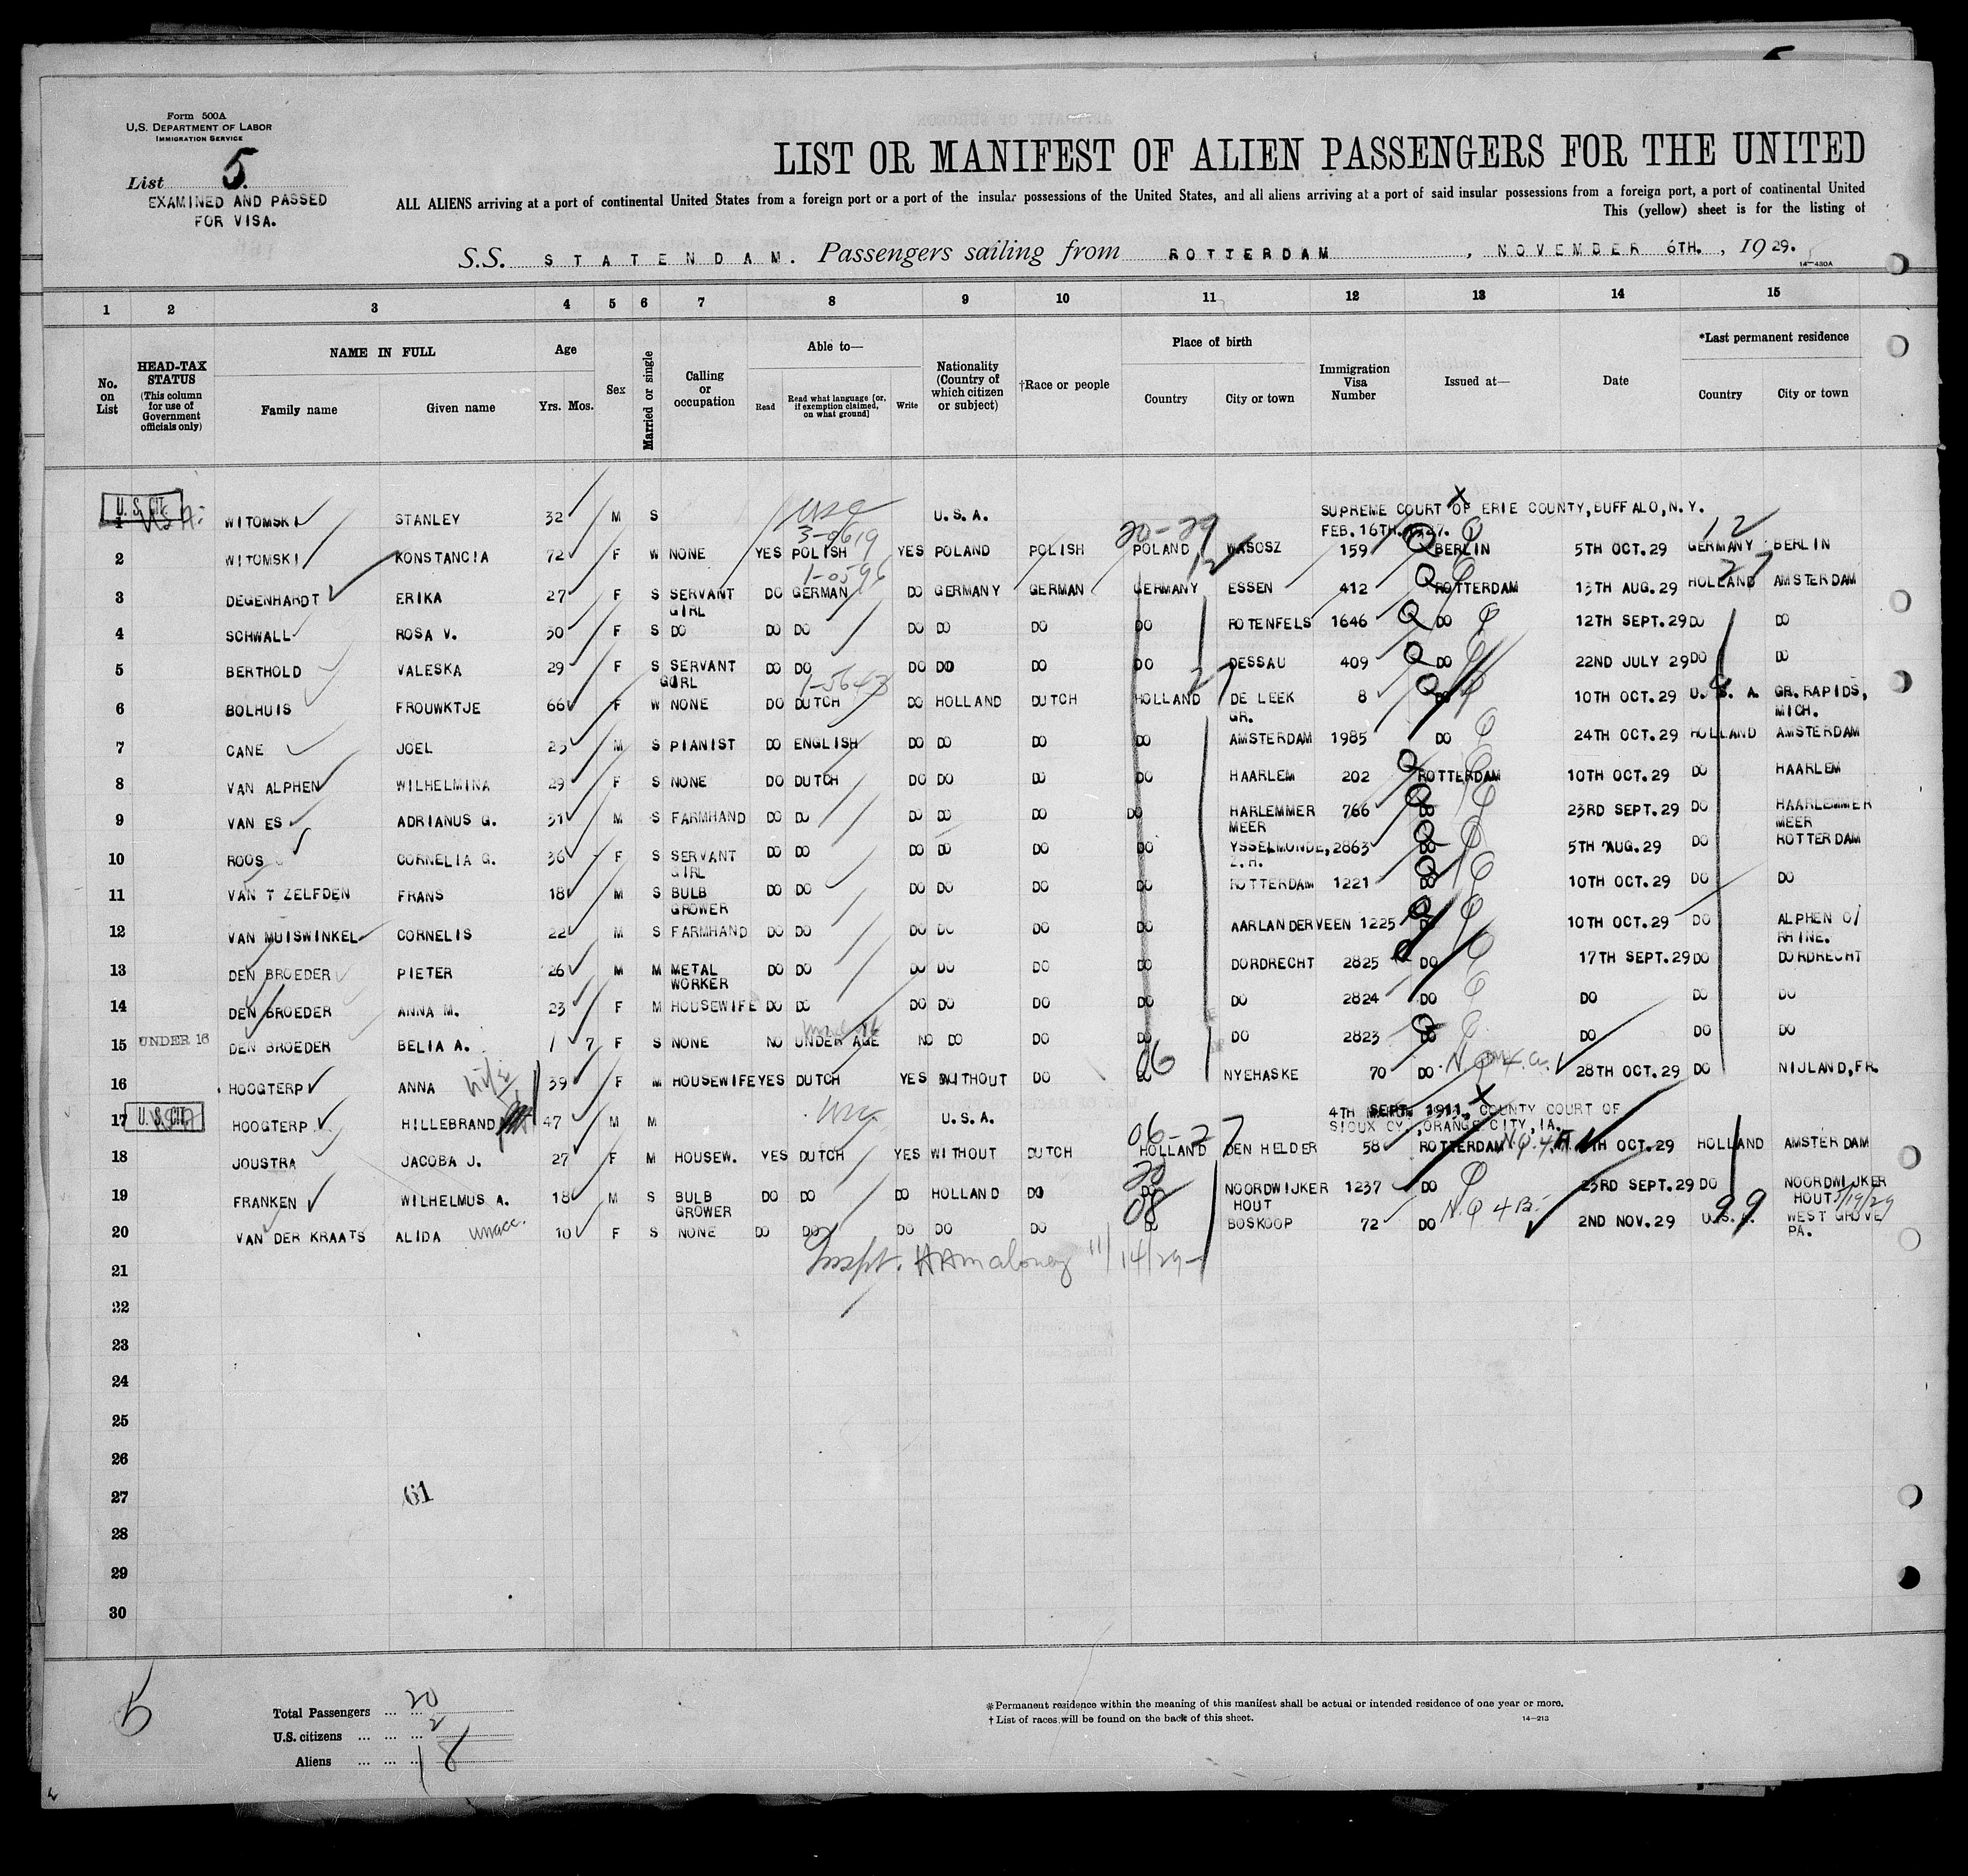 5
Form 500A
U.S. DEPARTMENT OF LABOR
IMMIGRATION SERVICE
List 5.
EXAMINED AND PASSED
FOR VISA.
LIST OR MANIFEST OF ALIEN PASSENGERS FOR THE UNITED
ALL ALIENS arriving at a port of continental United States from a foreign port or a port of the insular possessions of the United States, and all aliens arriving at a port of said insular possessions from a foreign port, a port of continental United
This (yellow) sheet is for the listing of
S.S. STATENDAM. Passengers sailing from ROTTERDAM, NOVEMBER 6TH., 1929.
14—430A
1 2 3 4 5 6 7 8 9 10 11 12 13 14 15
No. on List
HEAD-TAX STATUS (This column for use of Government officials only)
NAME IN FULL Family name Given name
Age Yrs. Mos.
Sex
Married or single
Calling or occupation
Able to— Read Read what language [or, if exemption claimed, on what ground] Write
Nationality (Country of which citizen or subject)
†Race or people
Place of birth Country City or town
Immigration Visa Number
Issued at—
Date
*Last permanent residence Country City or town
U.S. CIT. 1 WITOMSKI STANLEY 32 M S USC U.S.A. SUPREME COURT OF ERIE COUNTY, BUFFALO, N.Y.
3-0619 20-29 FEB. 16TH. 1927. 12
2 WITOMSKI KONSTANCIA 72 F W NONE YES POLISH YES POLAND POLISH POLAND WASOSZ 159 BERLIN 5TH OCT. 29 GERMANY BERLIN
1-0596 12 27
3 DEGENHARDT ERIKA 27 F S SERVANT GIRL DO GERMAN DO GERMANY GERMAN GERMANY ESSEN 412 ROTTERDAM 13TH AUG. 29 HOLLAND AMSTERDAM
4 SCHWALL ROSA V. 30 F S DO DO DO DO DO DO DO ROTENFELS 1646 DO 12TH SEPT. 29 DO DO
5 BERTHOLD VALESKA 29 F S SERVANT GIRL DO DO DO DO DO DO DESSAU 409 DO 22ND JULY 29 DO DO
1-5643 27
6 BOLHUIS FROUWKTJE 66 F W NONE DO DUTCH DO HOLLAND DUTCH HOLLAND DE LEEK GR. 8 DO 10TH OCT. 29 U.S.A. GR. RAPIDS, MICH.
7 CANE JOEL 23 M S PIANIST DO ENGLISH DO DO DO DO AMSTERDAM 1985 DO 24TH OCT. 29 HOLLAND AMSTERDAM
8 VAN ALPHEN WILHELMINA 29 F S NONE DO DUTCH DO DO DO DO HAARLEM 202 ROTTERDAM 10TH OCT. 29 DO HAARLEM
9 VAN ES ADRIANUS G. 31 M S FARMHAND DO DO DO DO DO DO HARLEMMER MEER 766 DO 23RD SEPT. 29 DO HAARLEMMER MEER
10 ROOS CORNELIA G. 36 F S SERVANT GIRL DO DO DO DO DO DO YSSELMONDE, Z.H. 2863 DO 5TH AUG. 29 DO ROTTERDAM
11 VAN T ZELFDEN FRANS 18 M S BULB GROWER DO DO DO DO DO DO ROTTERDAM 1221 DO 10TH OCT. 29 DO DO
12 VAN MUISWINKEL CORNELIS 22 M S FARMHAND DO DO DO DO DO DO AARLANDERVEEN 1225 DO 10TH OCT. 29 DO ALPHEN O/ RHINE.
13 DEN BROEDER PIETER 26 M M METAL WORKER DO DO DO DO DO DO DORDRECHT 2825 DO 17TH SEPT. 29 DO DORDRECHT
14 DEN BROEDER ANNA M. 23 F M HOUSEWIFE DO DO DO DO DO DO DO 2824 DO DO DO DO
15 UNDER 16 DEN BROEDER BELIA A. 1 7 F S NONE NO UNDER AGE NO DO DO DO DO 2823 DO DO DO DO
16 HOOGTERP ANNA wife 39 F M HOUSEWIFE YES DUTCH YES WITHOUT DO 06 DO NYEHASKE 70 DO N.Q. 4 a. 28TH OCT. 29 DO NIJLAND, FR.
17 U.S. CIT. HOOGTERP HILLEBRAND 47 M M USC U.S.A. 4TH SEPT. 1911, COUNTY COURT OF
SIOUX CY., ORANGE CITY, IA.
06-27
18 JOUSTRA JACOBA J. 27 F M HOUSEW. YES DUTCH YES WITHOUT DUTCH HOLLAND DEN HELDER 58 ROTTERDAM N.Q. 4 A. OCT. 29 HOLLAND AMSTERDAM
19 FRANKEN WILHELMUS A. 18 M S BULB GROWER DO DO DO HOLLAND DO DO NOORDWIJKER HOUT 1237 DO 23RD SEPT. 29 DO NOORDWIJKER HOUT
20 VAN DER KRAATS ALIDA unacc. 10 F S NONE DO DO DO DO DO 08 DO BOSKOOP 72 DO N.Q 4 B. 2ND NOV. 29 U.S.A. 99 WEST GROVE PA.
21 Inspt. HA Maloney 11/14/29
22
23
24
25
26
27 61
28
29
30
5
Total Passengers 20
U.S. citizens 2
Aliens 18
*Permanent residence within the meaning of this manifest shall be actual or intended residence of one year or more.
†List of races will be found on the back of this sheet.
14—213